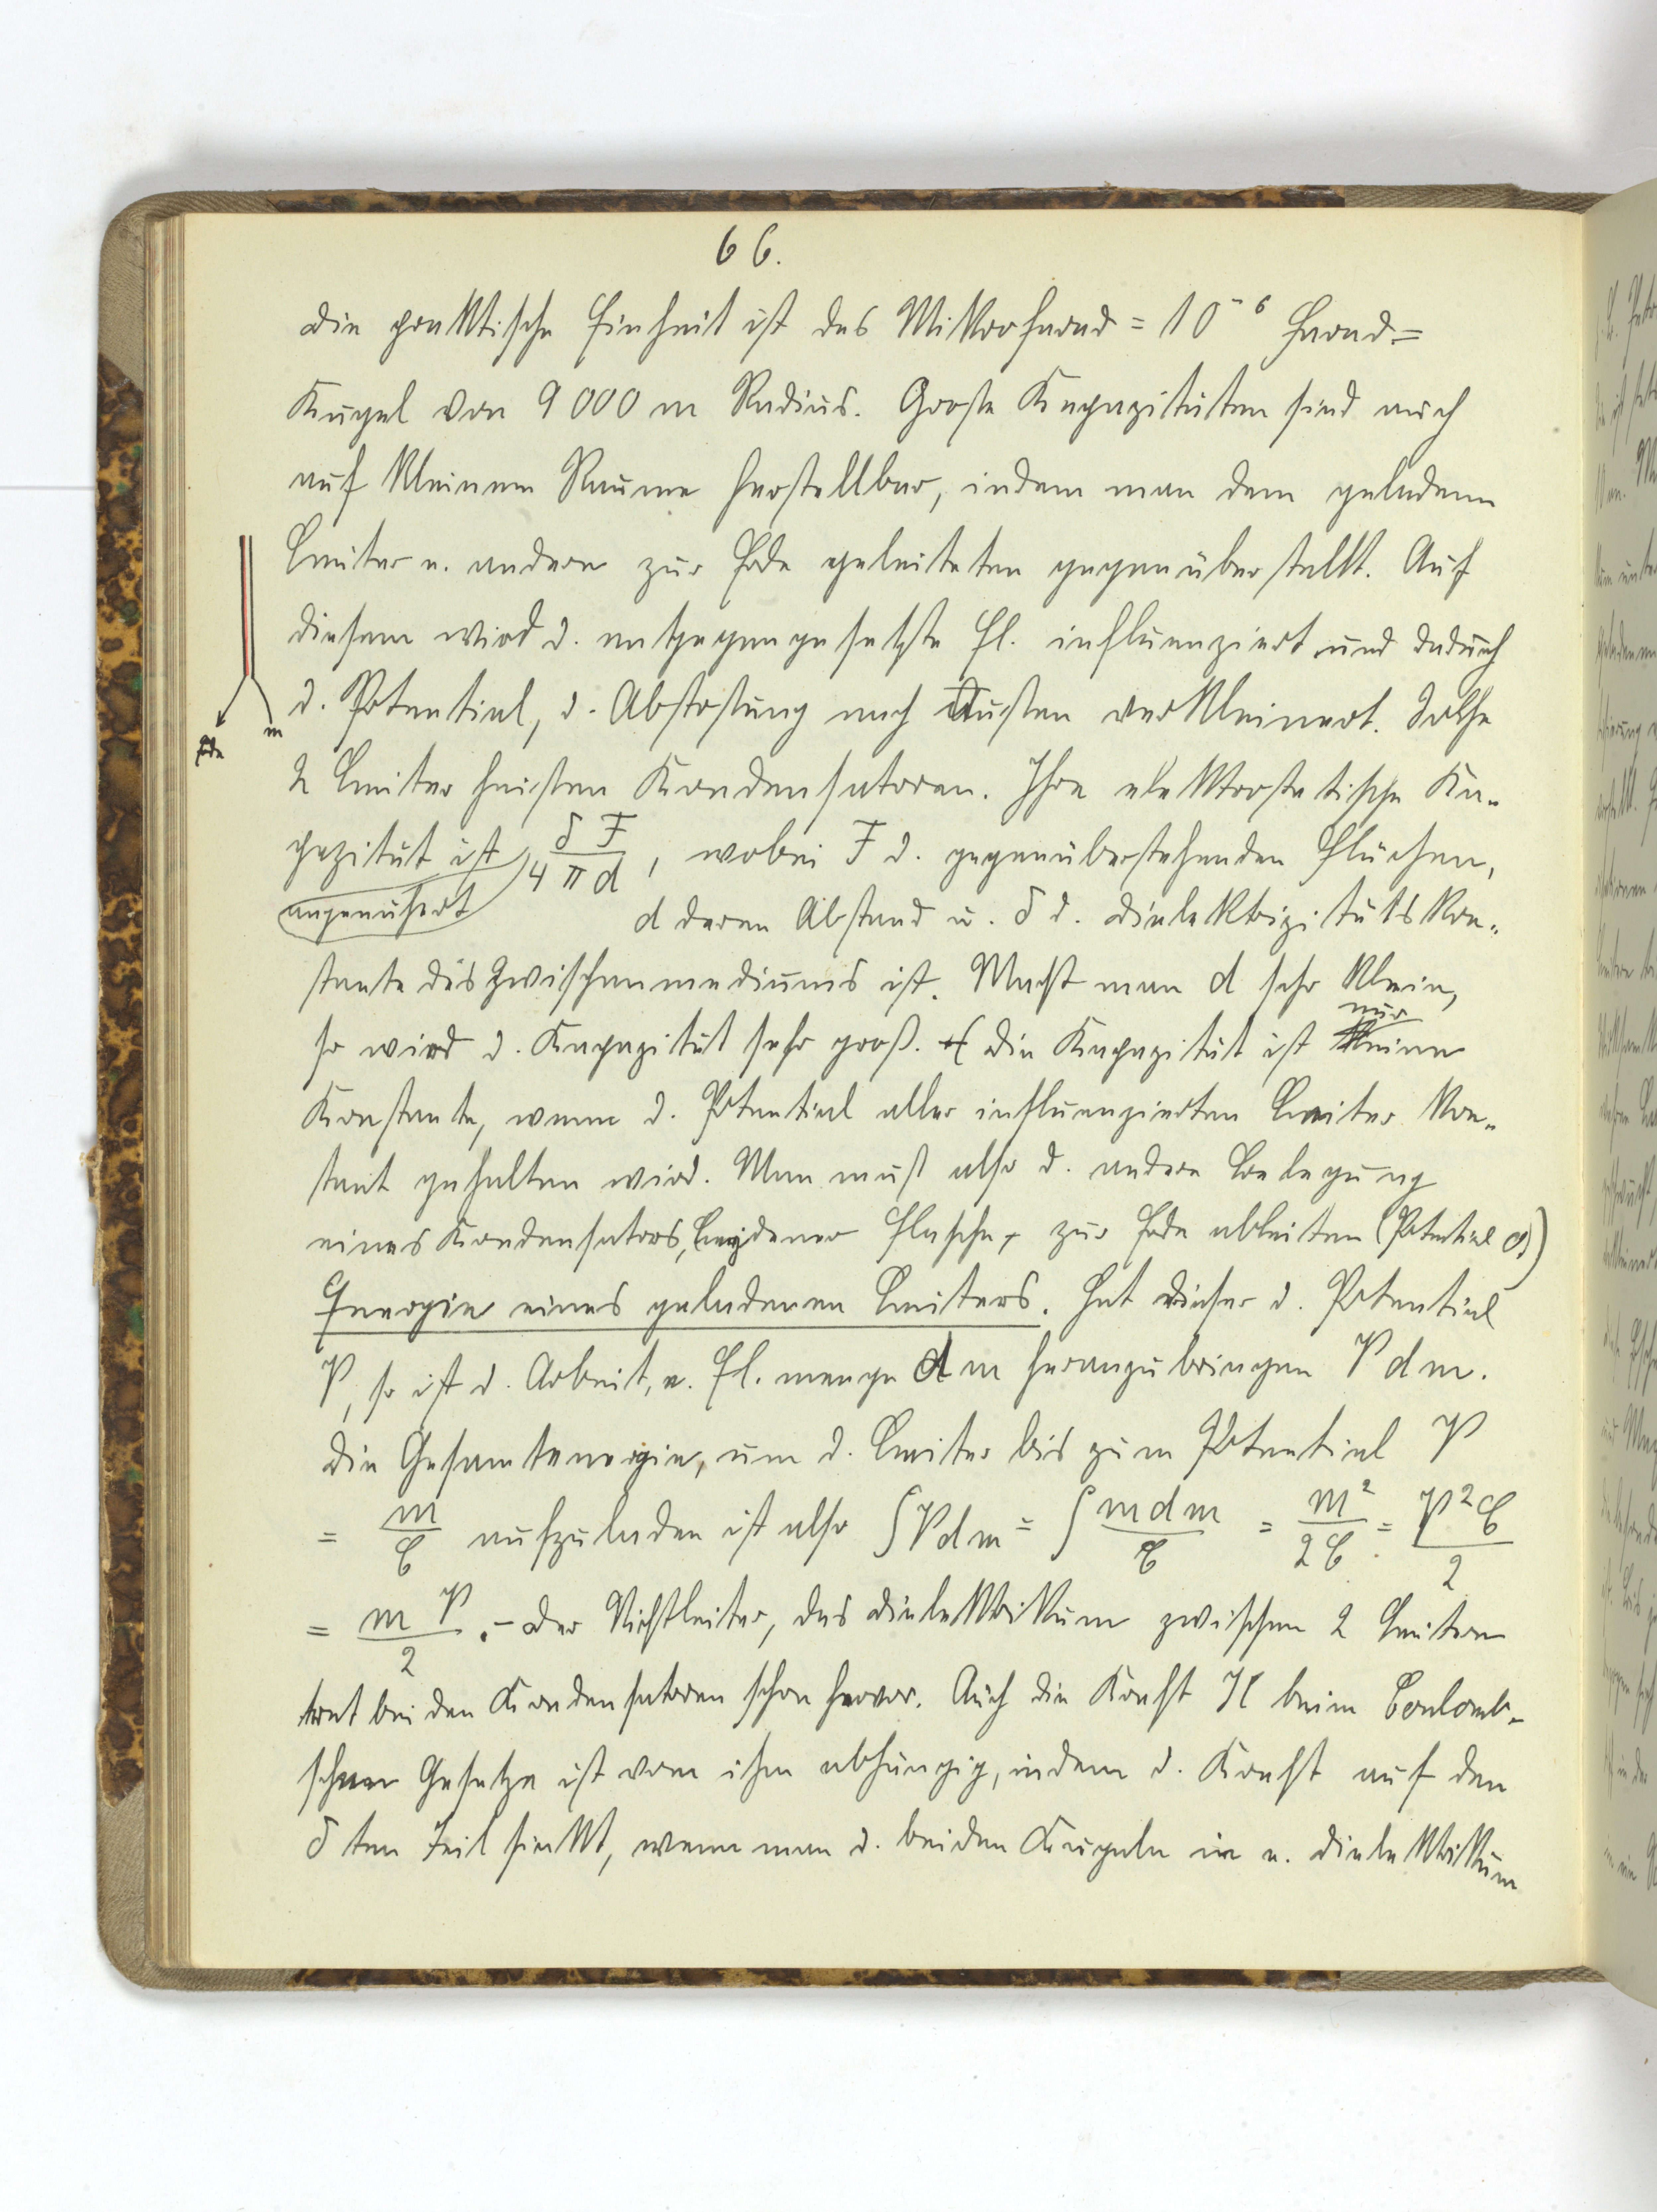 66.
Die praktische Einheit ist das Mikrofarad = 10⁻⁶ Farad =
Kugel von 9000 m Radius. Große Kapazitäten sind auch
auf kleinem Raume herstellbar, indem man dem geladenen
Leiter e. andern zur Erde geleiteten gegenüberstellt. Auf
diesem wird d. entgegengesetzte El. influenziert und dadurch
d. Potential, d. Abstoßung nach Außen verkleinert. Solche
Erde m
2 Leiter heißen Kondensatoren. Ihre elektrostatische Ka-
pazität ist δ F / 4 π d, wobei F d. gegenüberstehenden Flächen,
angenähert
d deren Abstand u. δ d. Dielektrizitätskon-
stante des Zwischenmediums ist. Macht man d sehr klein,
so wird d. Kapazität sehr groß. Die Kapazität ist nur eine
Konstante, wenn d. Potential aller influenzierten Leiter kon-
stant gehalten wird. Man muß also d. andere Belegung
eines Kondensators, Leydener Flasche, zur Erde ableiten (Potential 0)
Energie eines geladenen Leiters. Hat dieser d. Potential
V, so ist d. Arbeit, e. El. menge dm heranzubringen V dm.
Die Gesamtenergie, um d. Leiter bis zum Potential V
= m/C aufzuladen ist also ∫V dm = ∫ m dm / C = m²/2C = V²C/2
= m V/2. – Der Nichtleiter, das Dielektrikum zwischen 2 Leitern
trat bei den Kondensatoren schon hervor. Auch die Kraft K beim Coulomb-
schen Gesetze ist von ihm abhängig, indem d. Kraft auf den
δ ten Teil sinkt, wenn man d. beiden Kugeln in e. Dielektrikum